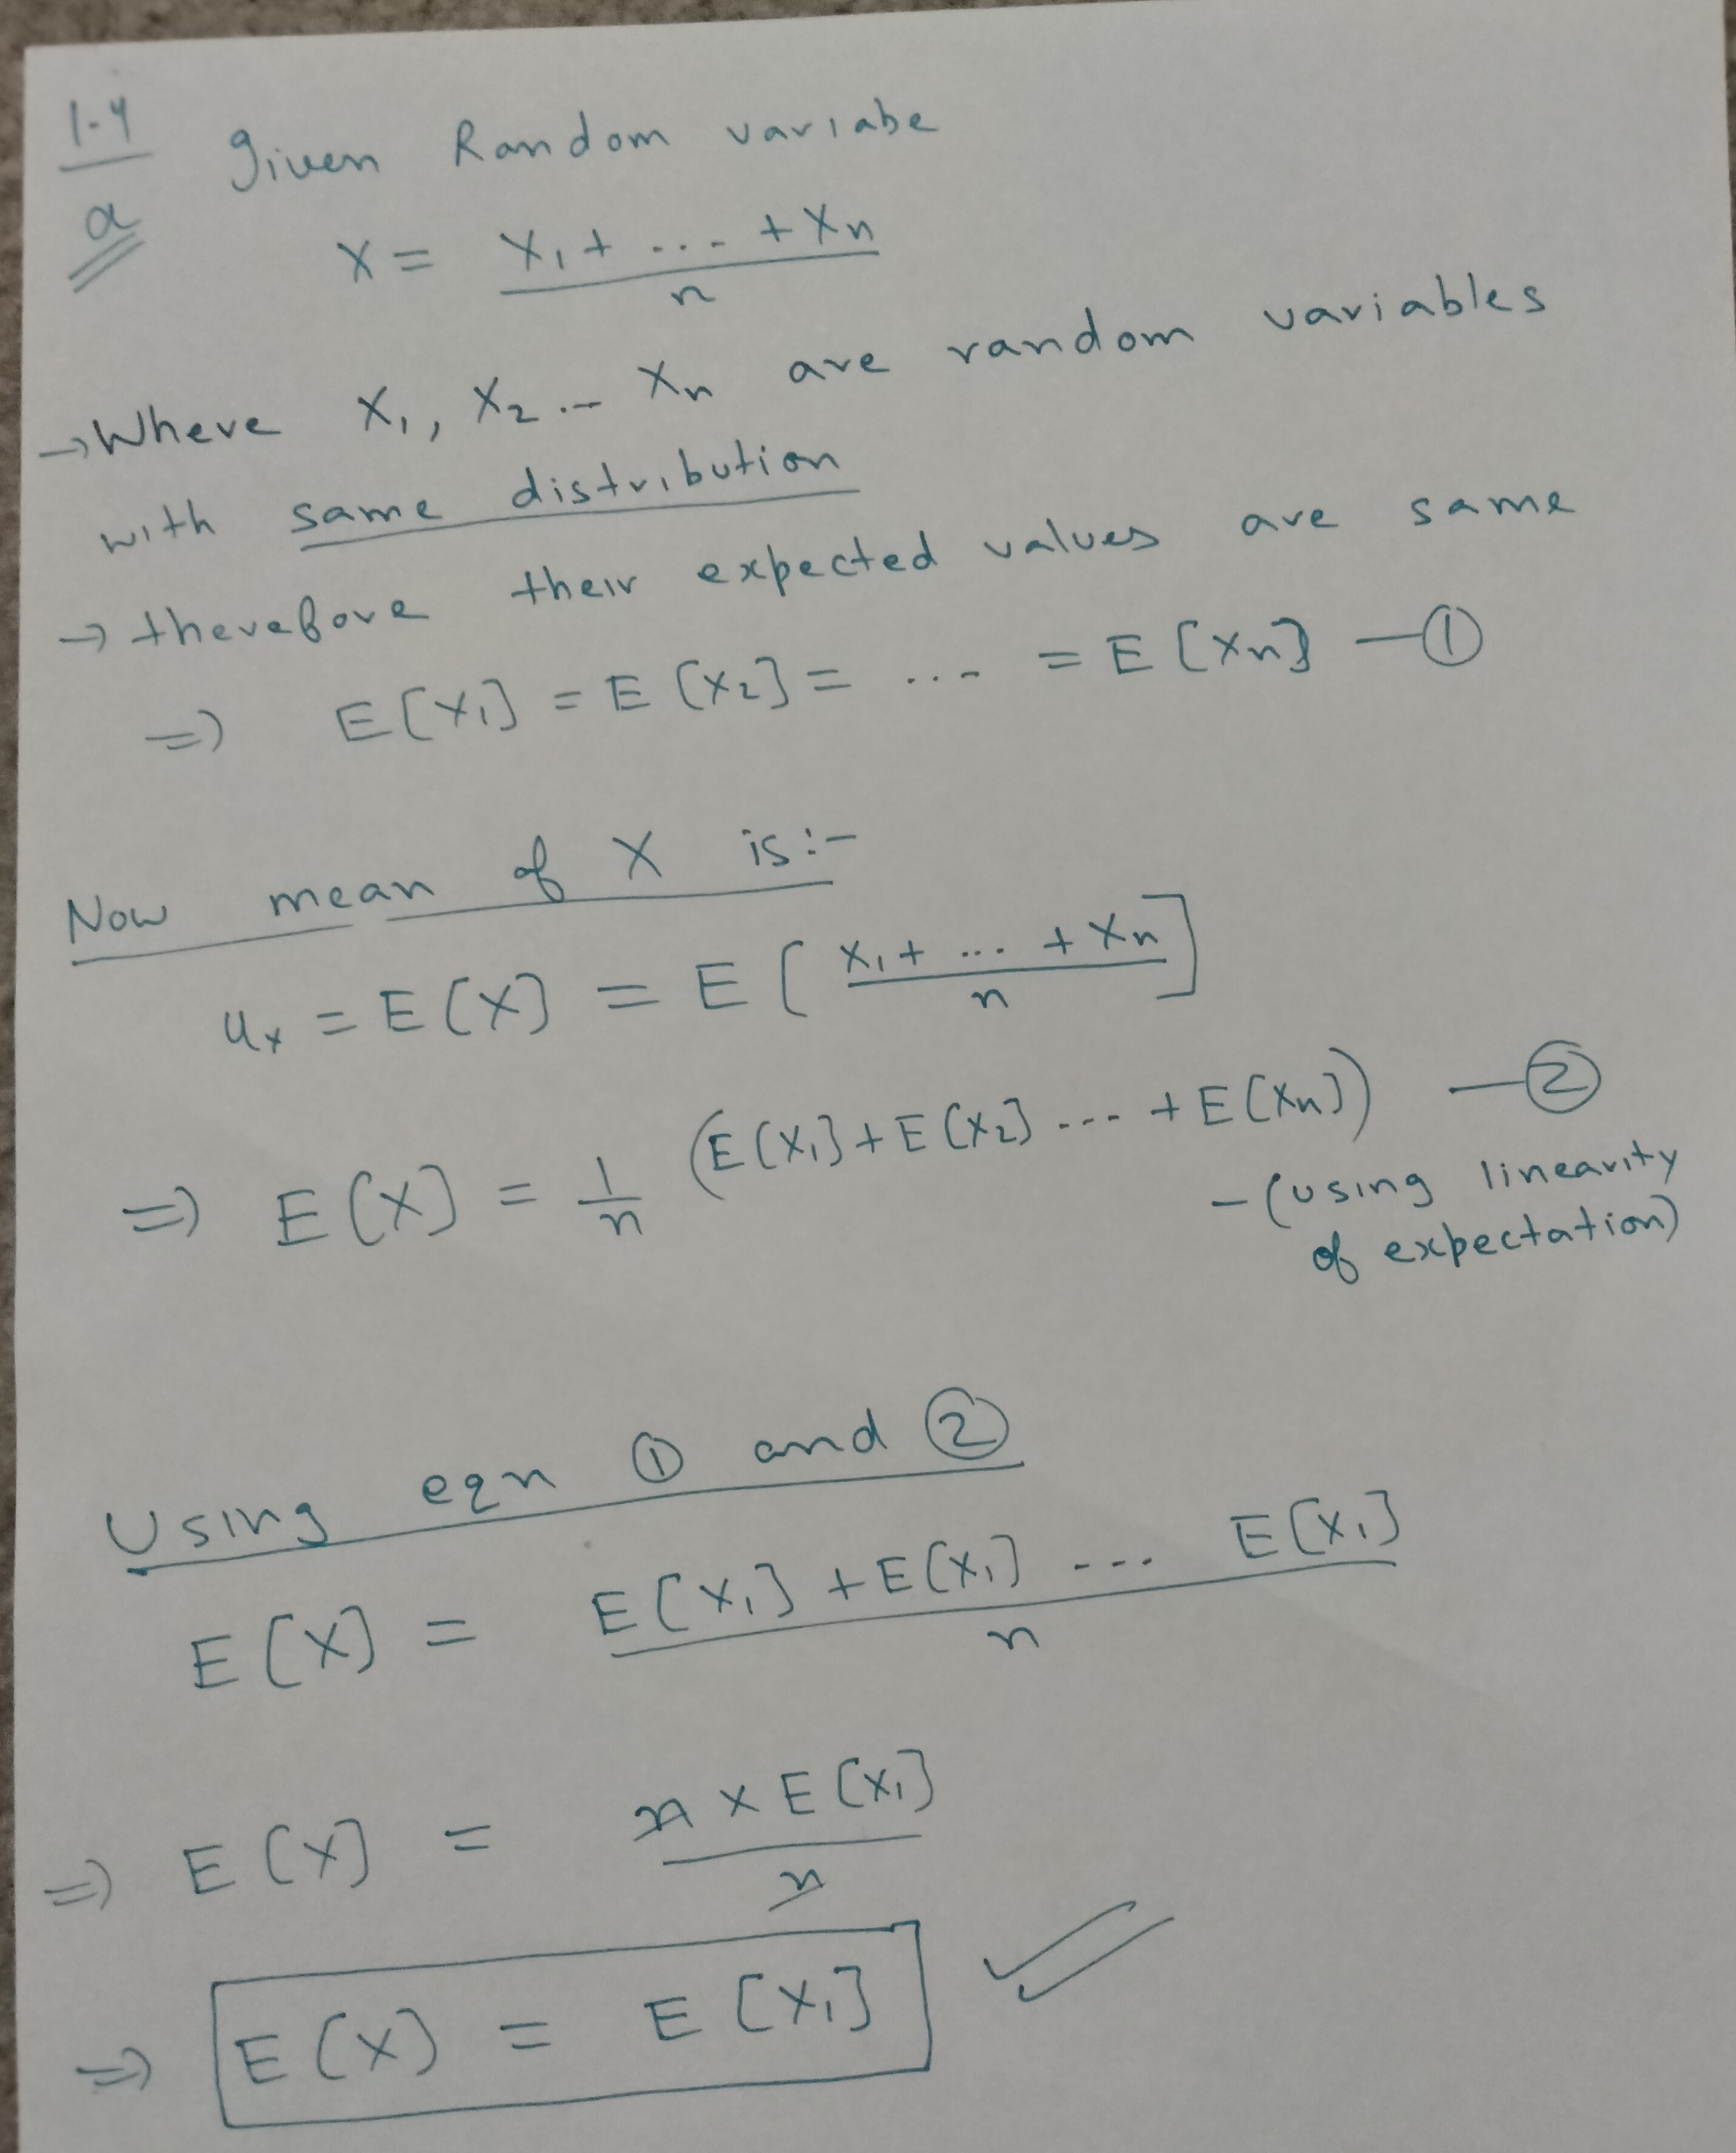 1.4
a
Given Random variabe
X = X₁ + ... + Xn / n
→ Where X₁, X₂ ... Xn are random variables
with same distribution
→ therefore their expected values are same
=> E[X₁] = E[X₂] = .... = E[Xn] — ①
Now mean of X is:-
ux = E[X] = E[X₁ + ... + Xn / n]
=> E[X] = 1/n (E[X₁] + E[X₂] .... + E[Xn]) — ②
- (using linearity
of expectation)
Using eqn ① and ②
E[X] = E[X₁] + E[X₁] ... E[X₁] / n
=> E[X] = n × E[X₁] / n
=> E[X] = E[X₁]